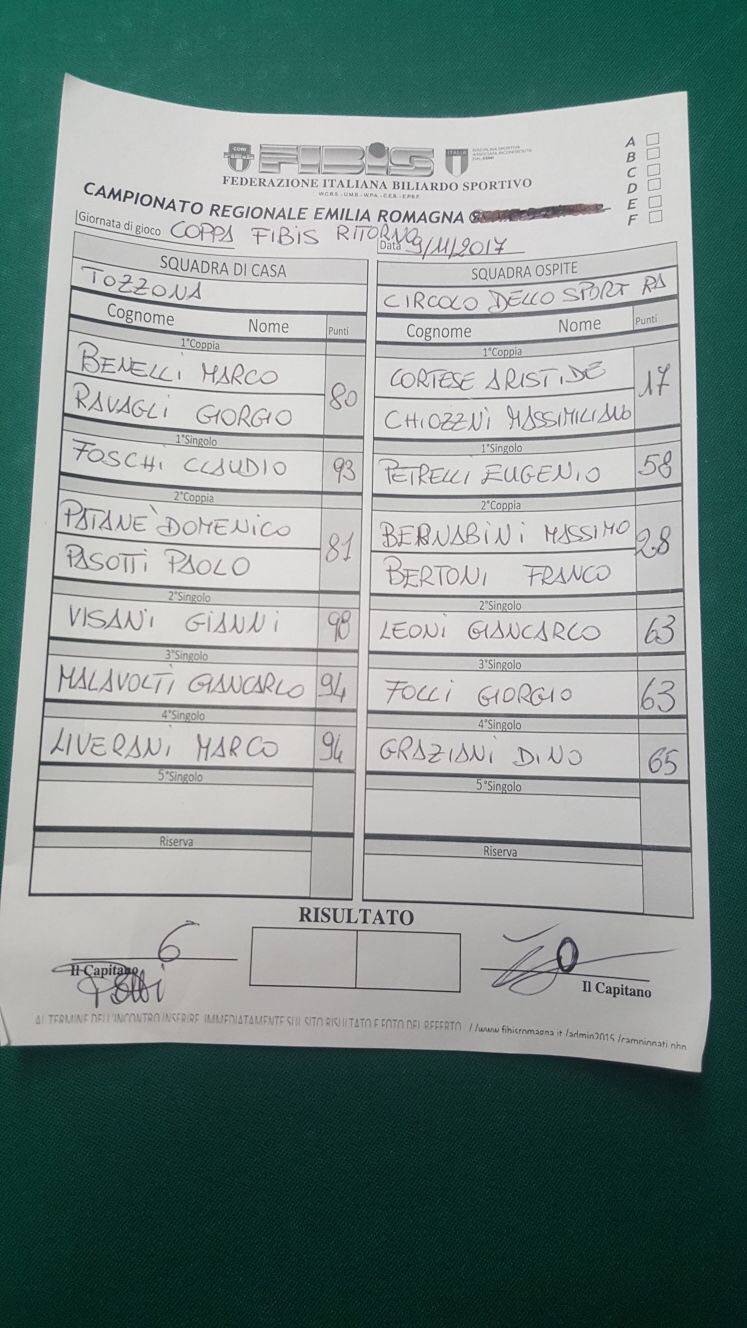 FIBIS
FEDERAZIONE ITALIANA BILIARDO SPORTIVO
W.C.B.S. - U.M.B. - W.P.A. - C.E.B. - E.P.B.F.
A
B
C
D
E
F
CAMPIONATO REGIONALE EMILIA ROMAGNA
Giornata di gioco COPPA FIBIS RITORNO Data 9/11/2017
SQUADRA DI CASA
TOZZONA
Cognome Nome Punti
1°Coppia
BENELLI MARCO
RAVAGLI GIORGIO
80
1°Singolo
FOSCHI CLAUDIO 93
2°Coppia
PATANE' DOMENICO
PASOTTI PAOLO
81
2°Singolo
VISANI GIANNI 98
3°Singolo
MALAVOLTI GIANCARLO 94
4°Singolo
LIVERANI MARCO 94
5°Singolo
Riserva
SQUADRA OSPITE
CIRCOLO DELLO SPORT RA
Cognome Nome Punti
1°Coppia
CORTESE ARISTIDE
CHIOZZNI MASSIMILIANO
17
1°Singolo
PETRELLI EUGENIO 58
2°Coppia
BERNABINI MASSIMO
BERTONI FRANCO
28
2°Singolo
LEONI GIANCARLO 63
3°Singolo
FOLLI GIORGIO 63
4°Singolo
GRAZIANI DINO 65
5°Singolo
Riserva
RISULTATO
6
0
Il Capitano
Il Capitano
AL TERMINE DELL'INCONTRO INSERIRE IMMEDIATAMENTE SUL SITO RISULTATO E FOTO DEL REFERTO //www.fibisromagna.it/admin2015/campionati.php